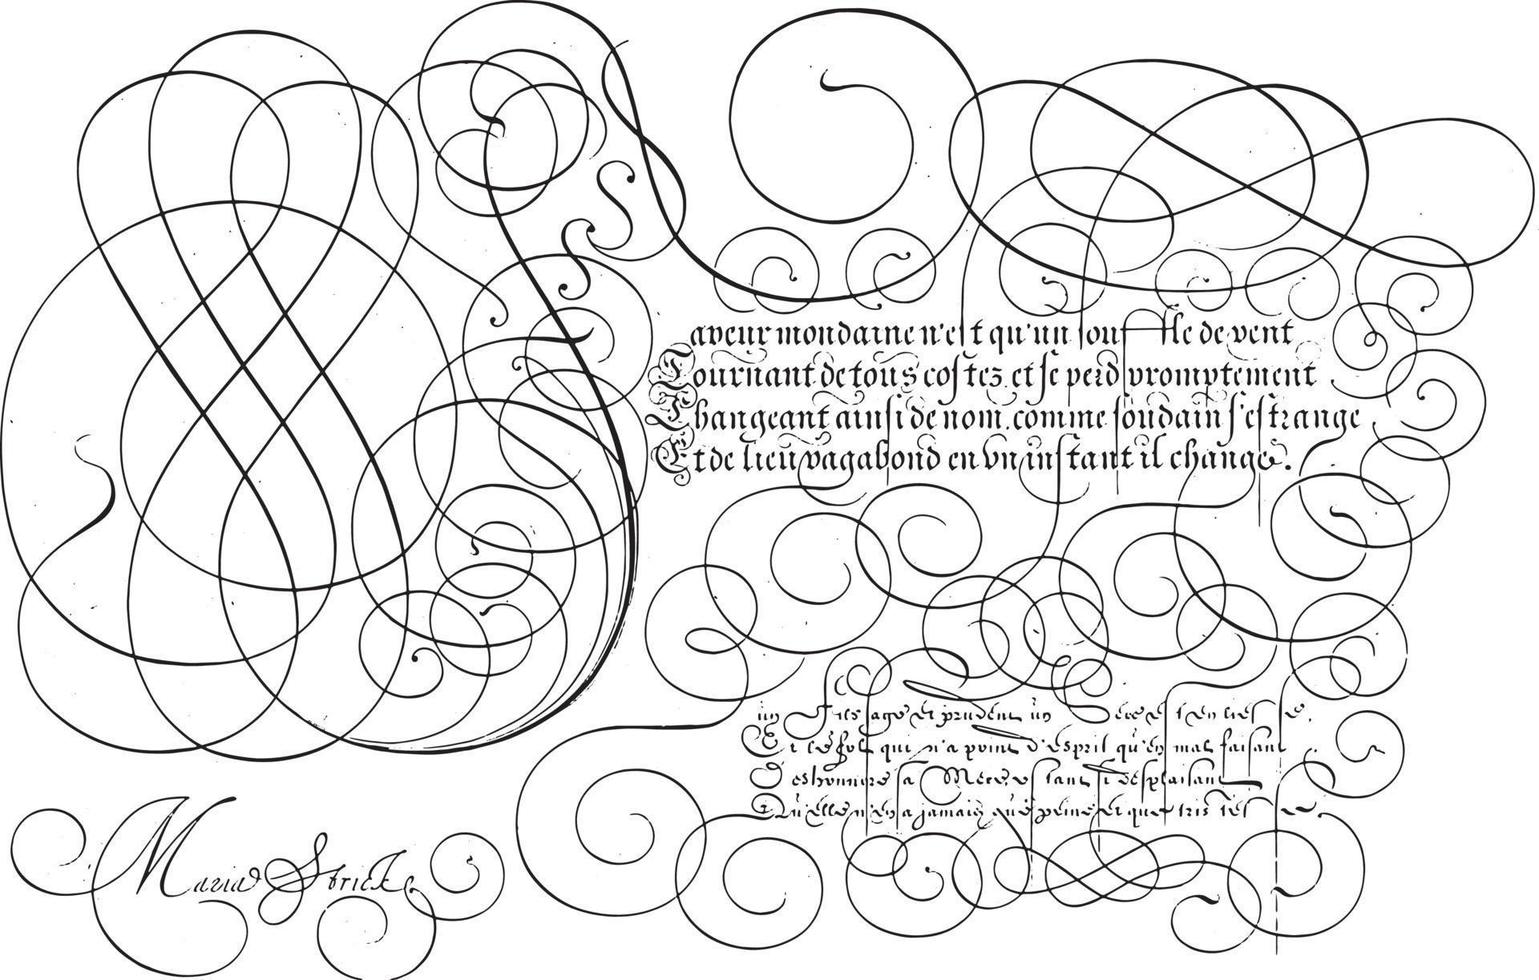 aveur mondaine n'est qu'un souffle de vent
Tournant de tous costez, et se perd promptement
Changeant ainsi de nom, comme soudain s'estrange
Et de lieu vagabond en vn instant il change.
un Fils sage et prudent un Pere esjen liesse,
Et le fol qui n'a point d'esprit qu'en mal faisant
Deshonnore sa Mere, estant si desplaisant
Qu'elle n'en a jamais que peine et que tristesse.
Maria Strick